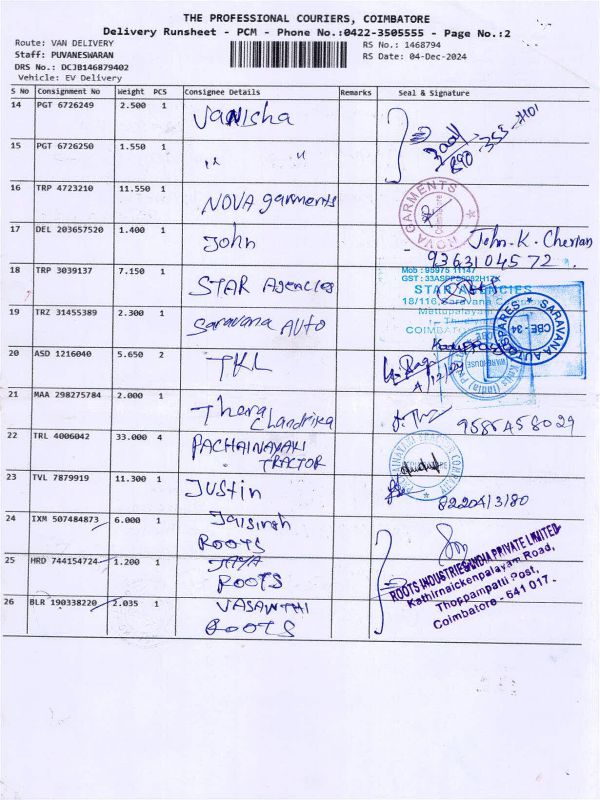 THE PROFESSIONAL COURIERS, COIMBATORE
Delivery Runsheet - PCM - Phone No.:0422-3505555 - Page No.:2
Route: VAN DELIVERY RS No.: 1468794
Staff: PUVANESWARAN RS Date: 04-Dec-2024
DRS No.: DCJB146879402
Vehicle: EV Delivery
S No Consignment No Weight PCS Consignee Details Remarks Seal & Signature
14 PGT 6726249 2.500 1 Vanisha
15 PGT 6726250 1.550 1 ,, "
16 TRP 4723210 11.550 1 NOVA garments
NOVA GARMENTS
17 DEL 203657520 1.400 1 John John-K-Cherian
9363104572
18 TRP 3039137 7.150 1 STAR Agencies
Mob : 95975 11147
STAR AGENCIES
19 TRZ 31455389 2.300 1 Saravana Auto
SARAVANA AUTOSPARES CBE - 34
20 ASD 1216040 5.650 2 TKL
4/12/24
21 MAA 298275784 2.000 1 Thera Chandrika
9585458029
22 TRL 4006042 33.000 4 PACHAINAYAKI
TRACTOR
23 TVL 7879919 11.300 1 Justin
8220413180
24 IXM 507484873 6.000 1 Jaisingh
ROOTS
25 HRD 744154724 1.200 1 JAYA
ROOTS
26 BLR 190338220 2.035 1 VASANTHI
ROOTS
ROOTS INDUSTRIES INDIA PRIVATE LIMITED
Kathirnaickenpalayam Road,
Thoppampatti Post,
Coimbatore - 641 017.